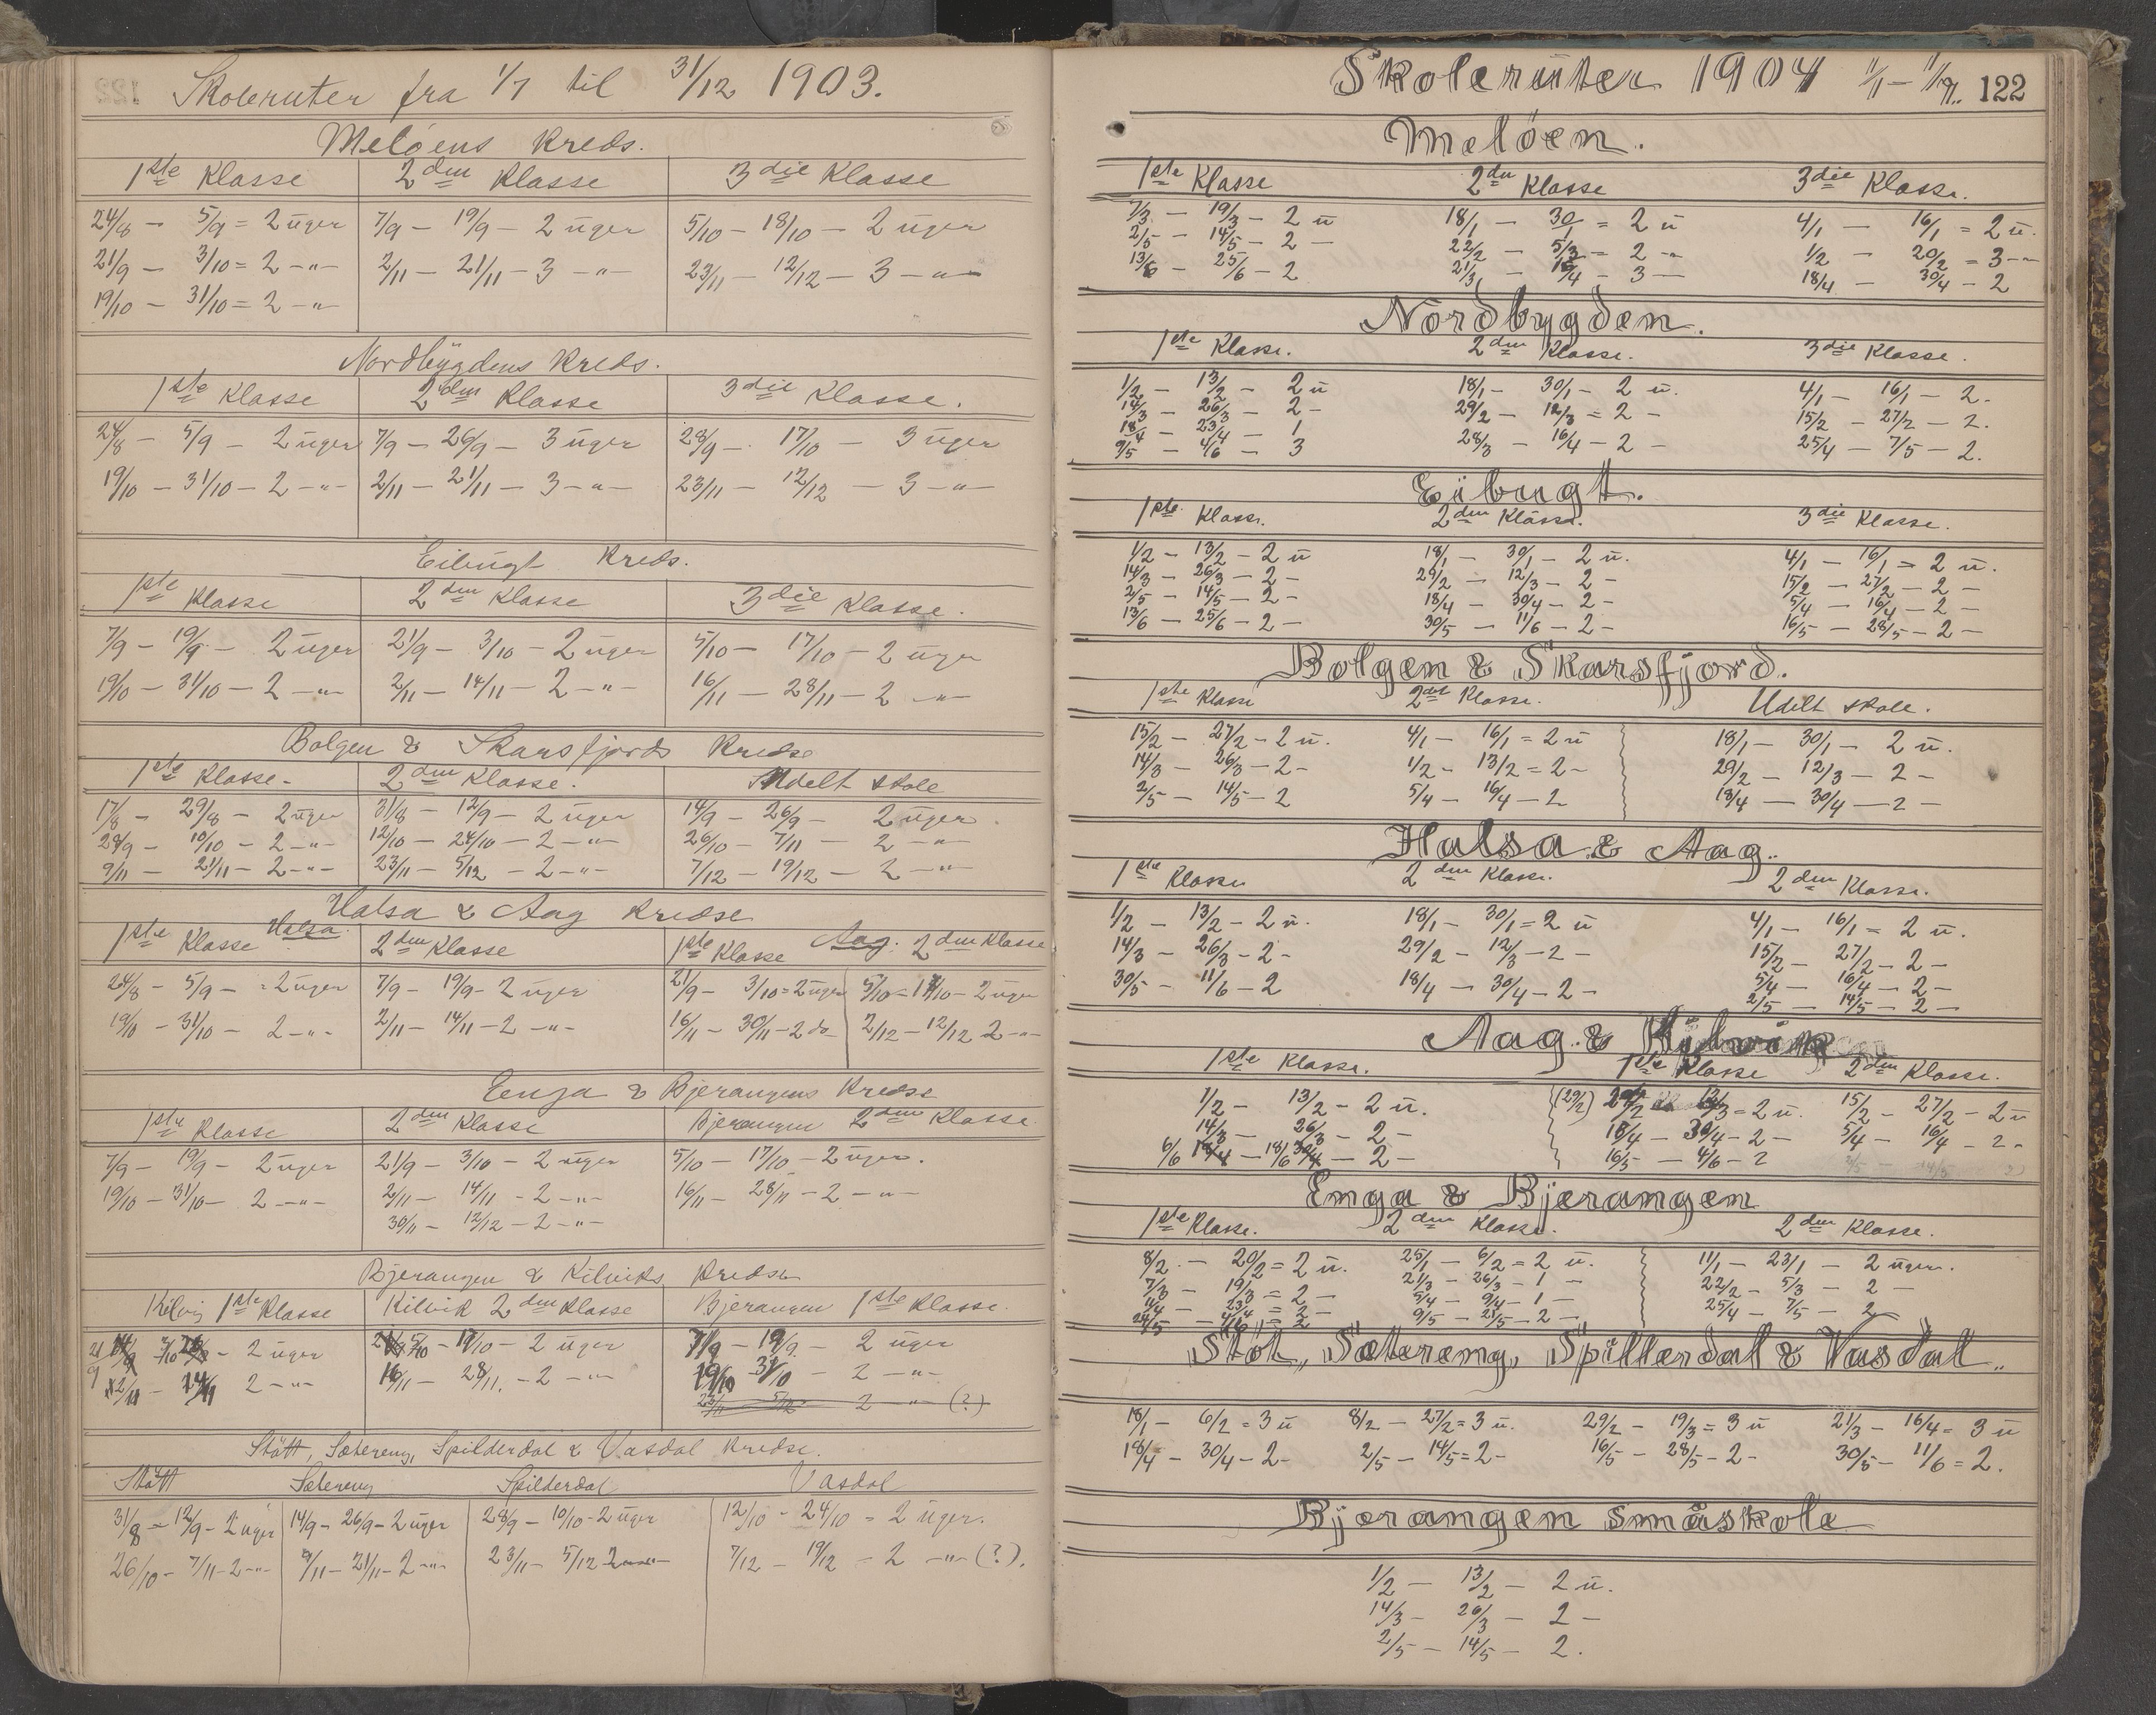 Skoleruter fra 1/7 til 31/12 1903.
Melöens Kreds.
1ste Klasse 2den Klasse 3die Klasse
24/8 - 5/9 = 2 uger 7/9 - 19/9 - 2 uger 5/10 - 18/10 - 2 uger
21/9 - 3/10 = 2 -"- 2/11 - 21/11 - 3 -"- 23/11 - 12/12 - 3 -"-
19/10 - 31/10 = 2 -"-
Nordbygdens Kreds.
1ste Klasse 2den Klasse 3die Klasse.
24/8 - 5/9 - 2 uger 7/9 - 26/9 - 3 uger 28/9 - 17/10 - 3 uger
19/10 - 31/10 - 2 -"- 2/11 - 21/11 - 3 -"- 23/11 - 12/12 - 3 -"-
Eibugt Kreds.
1ste Klasse 2den Klasse 3die Klasse.
7/9 - 19/9 - 2 uger 21/9 - 3/10 - 2 uger 5/10 - 17/10 - 2 uger
19/10 - 31/10 - 2 -"- 2/11 - 14/11 - 2 -"- 16/11 - 28/11 - 2 -"-
Bolgen & Skarsfjords Kredse
1ste Klasse - 2den Klasse. Udelt skole
17/8 - 29/8 - 2 uger 31/8 - 12/9 - 2 uger 14/9 - 26/9 - 2 uger.
28/9 - 10/10 - 2 -"- 12/10 - 24/10 - 2 -"- 26/10 - 7/11 - 2 -"-
9/11 - 21/11 - 2 -"- 23/11 - 5/12 - 2 -"- 7/12 - 19/12 - 2 -"-
Halsa & Aag Kredse
1ste Klasse Halsa. 2den Klasse 1ste Klasse Aag. 2den Klasse
24/8 - 5/9 - 2 uger 7/9 - 19/9 - 2 uger 21/9 - 3/10 = 2 uger 5/10 - 17/10 - 2 uger
19/10 - 31/10 - 2 -"- 2/11 - 14/11 - 2 -"- 16/11 - 30/11 - 2 do 2/12 - 12/12 2 -"-
Enga & Bjerangens Kredse
1ste Klasse 2den Klasse Bjerangen 2den Klasse.
7/9 - 19/9 - 2 uger 21/9 - 3/10 - 2 uger 5/10 - 17/10 - 2 uger.
19/10 - 31/10 - 2 -"- 2/11 - 14/11 - 2 -"- 16/11 - 28/11 - 2 -"-
30/11 - 12/12 - 2 -"-
Bjerangen & Kilviks Kredse
Kilvig 1ste Klasse Kilvik 2den Klasse Bjerangen 1ste Klasse.
21/9 3/10 - 2 uger 5/10 - 17/10 - 2 uger 7/9 - 19/9 - 2 uger
2/11 - 14/11 2 -"- 16/11 - 28/11. - 2 -"- 19/10 - 31/10 - 2 -"-
2 -"- (?)
Stött, Sætereng, Spilderdal & Vasdal Kredse.
Stött Sætereng Spilderdal Vasdal
31/8 - 12/9 - 2 uger 14/9 - 26/9 - 2 uger 28/9 - 10/10 - 2 uger 12/10 - 24/10 - 2 uger.
26/10 - 7/11 - 2 -"- 9/11 - 21/11 - 2 -"- 23/11 - 5/12 2 -"- 7/12 - 19/12 - 2 -"- (?).
Skoleruter 1904 122
Melöen.
1ste Klasse 2den Klasse 3die Klasse.
7/3 - 19/3 - 2 u 18/1 - 30/1 = 2 u 4/1 - 16/1 = 2 u.
2/5 - 14/5 - 2 - 22/2 - 5/3 = 2 -"- 1/2 - 20/2 = 3 -"-
13/6 - 25/6 - 2 21/3 - 16/4 - 3 - 18/4 - 30/4 - 2
Nordbygden.
1ste Klasse. 2den Klasse. 3die Klasse.
1/2 - 13/2 - 2 u 18/1 - 30/1 - 2 u. 4/1 - 16/1 - 2.
14/3 - 26/3 - 2 - 29/2 - 12/3 = 2 - 15/2 - 27/2 - 2.
18/4 - 23/4 - 1 28/3 - 16/4 - 2 - 25/4 - 7/5 - 2.
9/5 - 4/6 - 3
Eibugt.
1ste Klasse. 2den Klasse. 3die Klasse.
1/2 - 13/2 - 2 u 18/1 - 30/1 - 2 u. 4/1 - 16/1 = 2 u.
14/3 - 26/3 - 2 - 29/2 - 12/3 - 2 - 15/2 - 27/2 - 2 -
2/5 - 14/5 - 2 - 18/4 - 30/4 - 2 - 5/4 - 16/4 - 2 -
13/6 - 25/6 - 2 - 30/5 - 11/6 - 2 - 16/5 - 28/5 - 2 -
Bolgen & Skarsfjord.
1ste Klasse 2den Klasse. Udelt skole.
15/2 - 27/2 - 2 u. 4/1 - 16/1 = 2 u 18/1 - 30/1 - 2 u.
14/3 - 26/3 - 2 - 1/2 - 13/2 = 2 - 29/2 - 12/3 - 2 -
2/5 - 14/5 - 2 5/4 - 16/4 - 2 18/4 - 30/4 - 2 -
Halsa & Aag.
1ste Klasse 2den Klasse. 2den Klasse.
1/2 - 13/2 - 2 u. 18/1 - 30/1 = 2 u 4/1 - 16/1 = 2 u.
14/3 - 26/3 - 2 - 29/2 - 12/3 - 2 - 15/2 - 27/2 - 2 -
30/5 - 11/6 - 2 18/4 - 30/4 - 2 - 5/4 - 16/4 - 2 -
2/5 - 14/5 - 2 -
Aag & Kilvik
1ste Klasse. 1ste Klasse 2den Klasse.
1/2 - 13/2 - 2 u. (29/2) 29/2 12/3 = 2 u. 15/2 - 27/2 - 2 u
14/3 - 26/3 - 2 - 18/4 - 30/4 - 2 - 5/4 - 16/4 - 2 -
6/6 - 18/6 - 2 - 16/5 - 4/6 - 2
Enga & Bjerangen
1ste Klasse. 2den Klasse. 2den Klasse.
8/2 - 20/2 = 2 u. 25/1 - 6/2 = 2 u. 11/1 - 23/1 - 2 uger.
7/3 - 19/3 = 2 - 21/3 - 26/3 - 1 - 22/2 - 5/3 - 2 -
11/4 - 23/4 = 2 - 5/4 - 9/4 - 1 - 25/4 - 7/5 - 2
24/5 - 4/6 = 2 9/5 - 21/5 - 2 -
Stöt, Sætereng, Spillerdal & Vasdal.
18/1 - 6/2 = 3 u 8/2 - 27/2 = 3 u. 29/2 - 19/3 = 3 u 21/3 - 16/4 = 3 u
18/4 - 30/4 - 2 - 2/5 - 14/5 = 2 - 16/5 - 28/5 - 2 - 30/5 - 11/6 = 2.
Bjerangen småskole
1/2 - 13/2 - 2 u.
14/3 - 26/3 - 2 -
2/5 - 14/5 - 2.